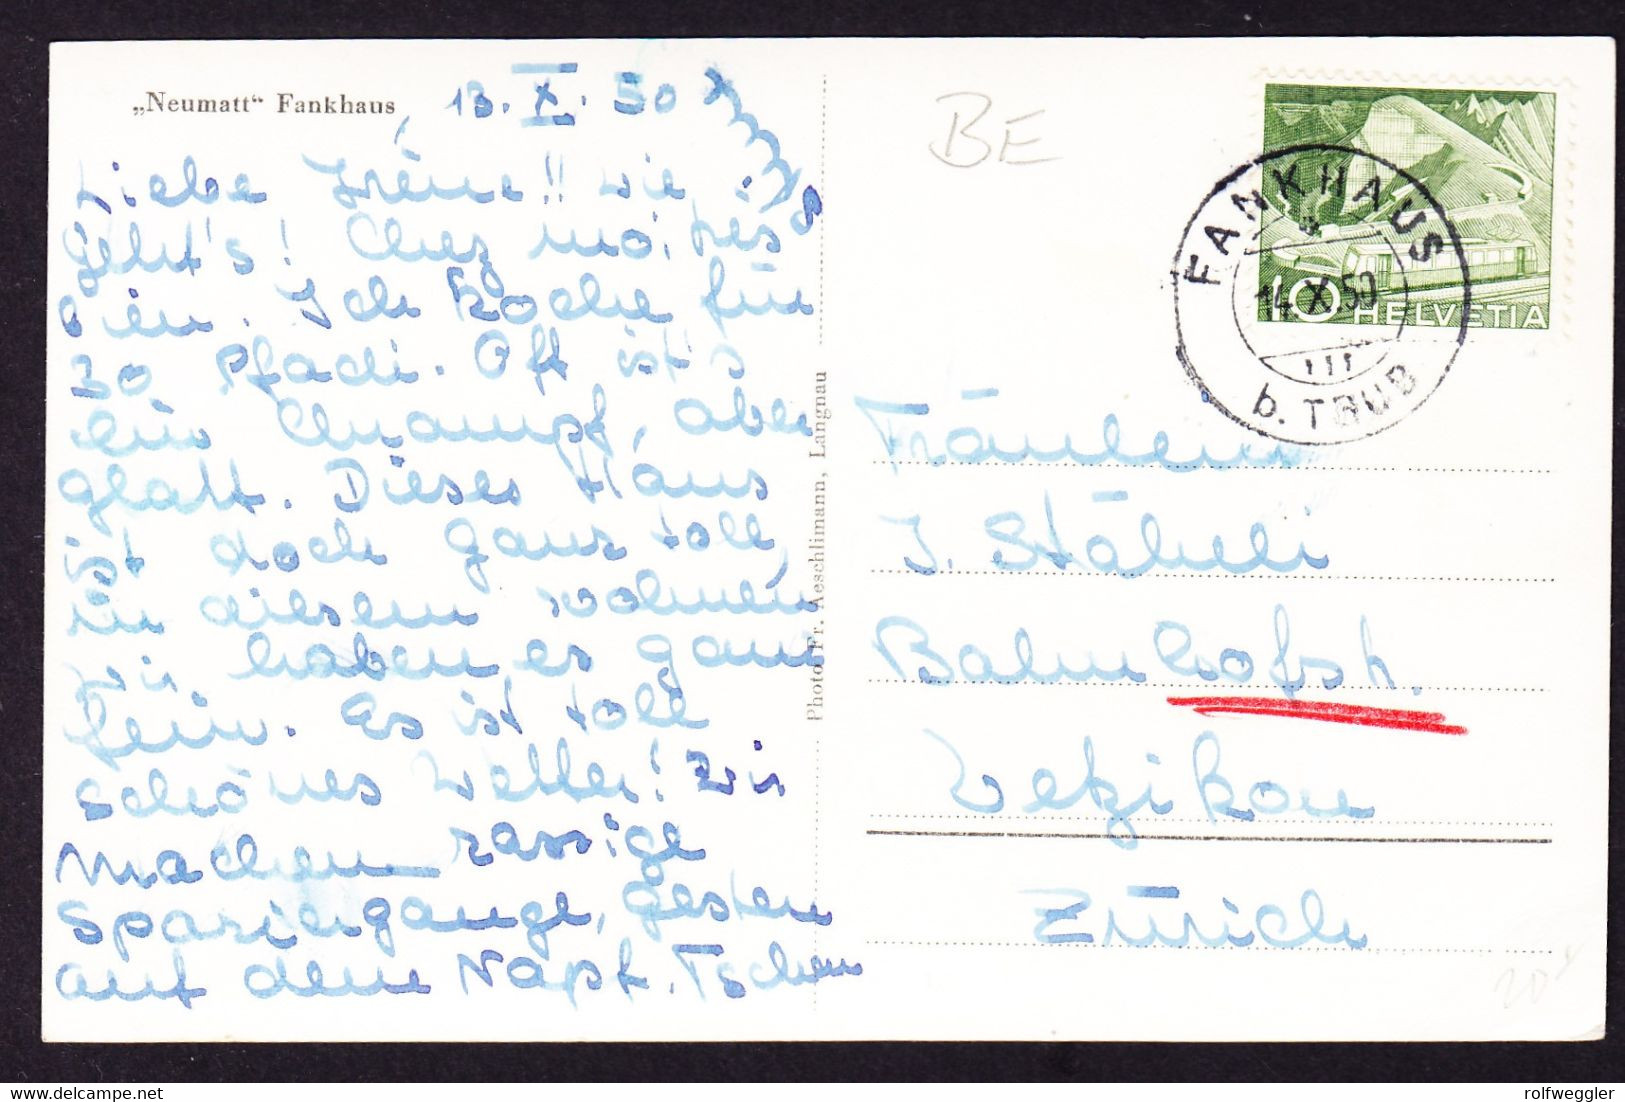 „Neumatt“ Fankhaus, 13. X. 50
Liebe Irène!! Wie
geht's! Chez moi très
bien. Ich koche für
30 Pfadi. Oft ist's
ein Chrampf, aber
glatt. Dieses Haus
ist doch ganz toll,
in diesem wohnen
wir, haben es ganz
fein. Es ist toll
schönes Wetter! Wir
machen rassige
Spaziergänge, gestern
auf dem Napf. Tschau
Photo Fr. Aeschlimann, Langnau
BE
FANKHAUS
14. X. 50
III
b. TRUB
10 HELVETIA
Fräulein
I. Stäheli
Bahnhofstr.
Wetzikon
Zürich
rolfweggler